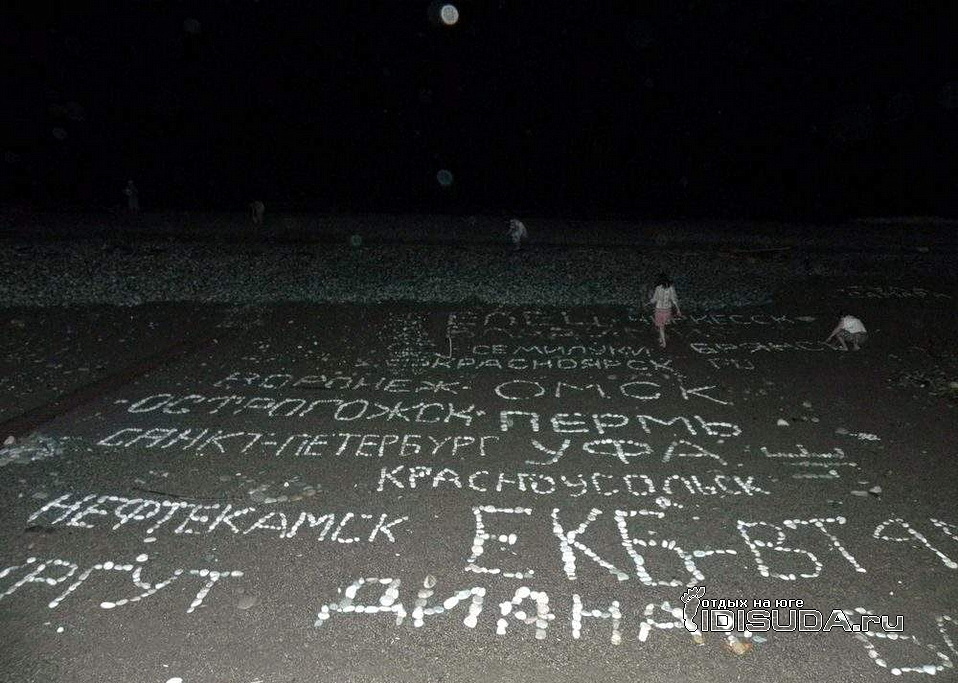 ЕЛЕЦ
СЕМИЛУКИ
БРЯНСК
КРАСНОЯРСК
ВОРОНЕЖ ОМСК
ОСТРОГОЖСК ПЕРМЬ
САНКТ-ПЕТЕРБУРГ УФА
КРАСНОУСОЛЬСК
НЕФТЕКАМСК ЕКБ-ВТЯ
РГУТ ДИАНА
отдых на юге
IDISUDA.ru